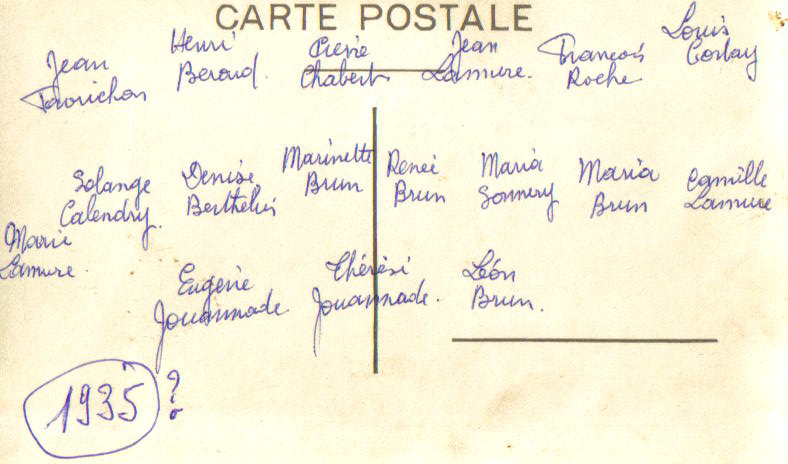 CARTE POSTALE
Jean Henri Pierre Jean François Louis
Tavrichon Beroud. Chabert Lamure. Roche Corbay
Solange Denise Marinette Renée Maria Maria Camille
Calendry. Berthelin Brun Brun Sonnery Brun Lamure
Marie
Lamure.
Eugénie Thérèse Léon
Jouannade. Jouannade. Brun.
1935 ?